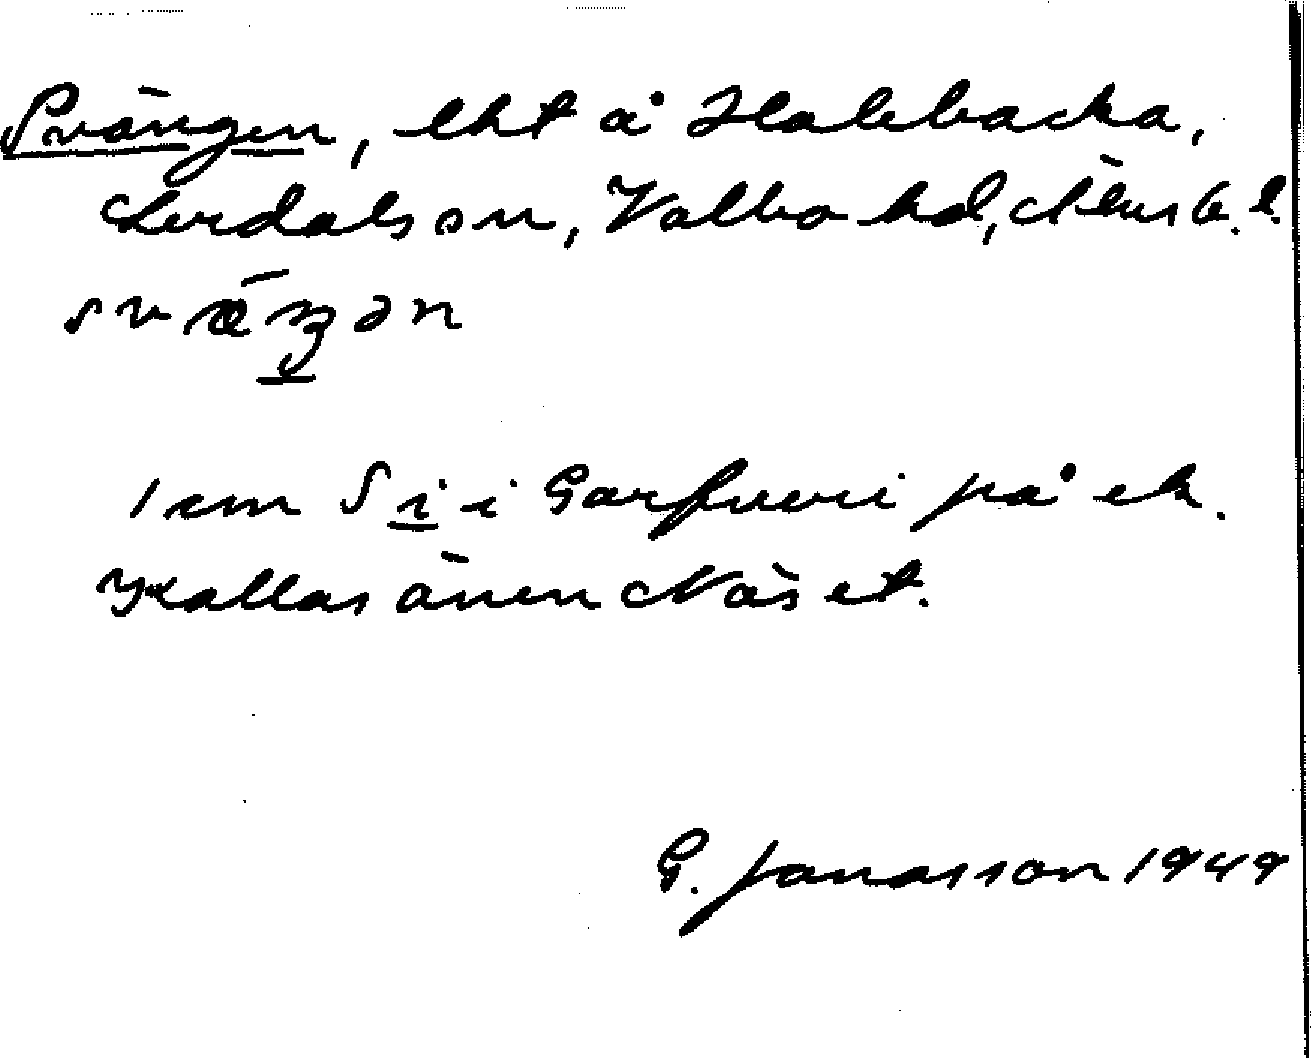 Svängen, lht å Halebacka,
Lerdals sn, Valbo hd, Älvsb. l.
sväŋən
1 km S i i Gärfveri på ek.
Kallas även Näset.
G. Jonasson 1949